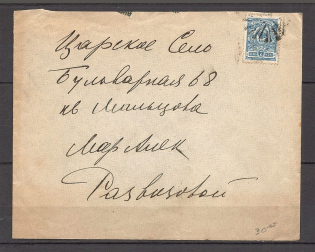 Царское Село
Бульварная 68
кв Мальцова
Мар Алек
Развозовой
30-